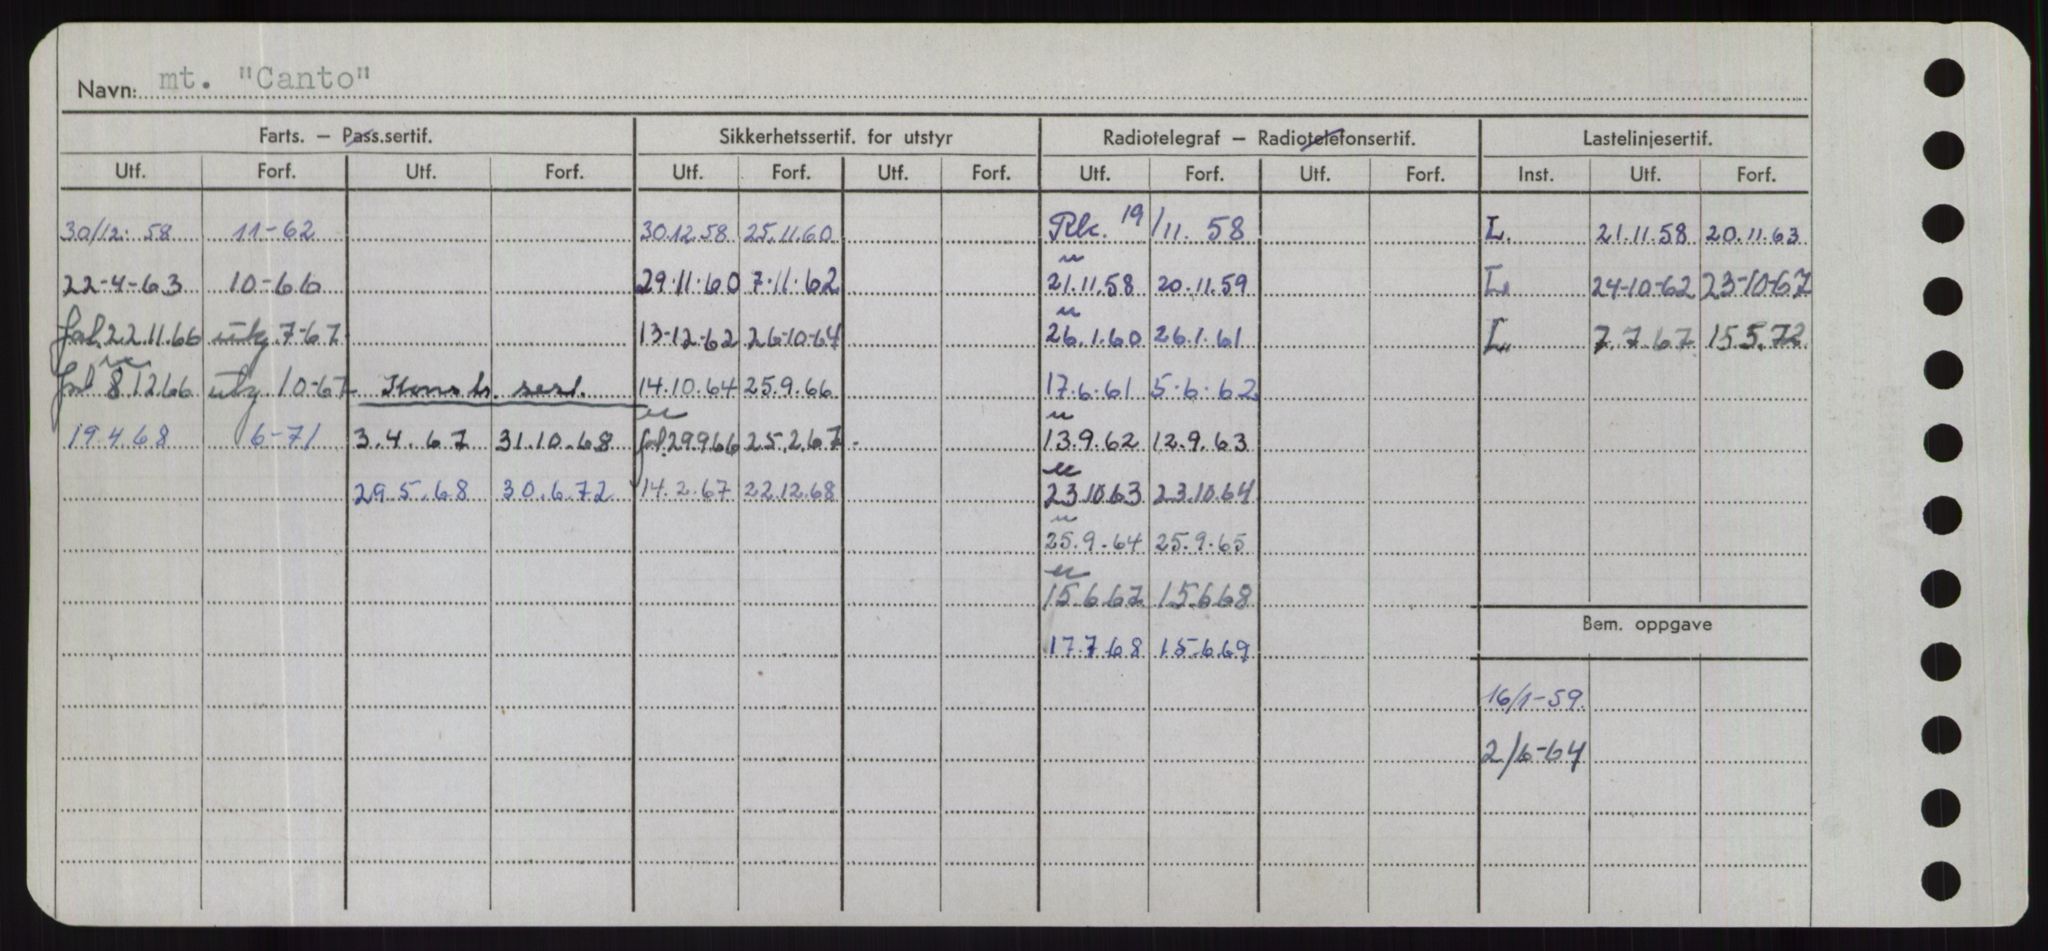 Navn: mt. "Canto"
Farts. — Pass.sertif. Sikkerhetssertif. for utstyr Radiotelegraf — Radiotelefonsertif. Lastelinjesertif.
Utf. Forf. Utf. Forf. Utf. Forf. Utf. Forf. Utf. Forf. Utf. Forf. Inst. Utf. Forf.
30/12. 58 11-62 30.12.58 25.11.60 19/11. 58 L. 21.11.58 20.11.63
22-4-63 10-66 29.11.60 7.11.62 21.11.58 20.11.59 L. 24-10-62 23-10-67
22.11.66 7-67 13-12-62 26-10-64 26.1.60 26.1.61 L. 7.7.67 15.5.72
8.12.66 10-67 14.10.64 25.9.66 17.6.61 5.6.62
19.4.68 6-71 3.4.67 31.10.68 29.9.66 25.2.67 13.9.62 12.9.63
29.5.68 30.6.72 14.2.67 22.12.68 23.10.63 23.10.64
25.9.64 25.9.65
15.6.67 15.6.68
Bem. oppgave
17.7.68 15.6.69
16/1-59.
2/6-64